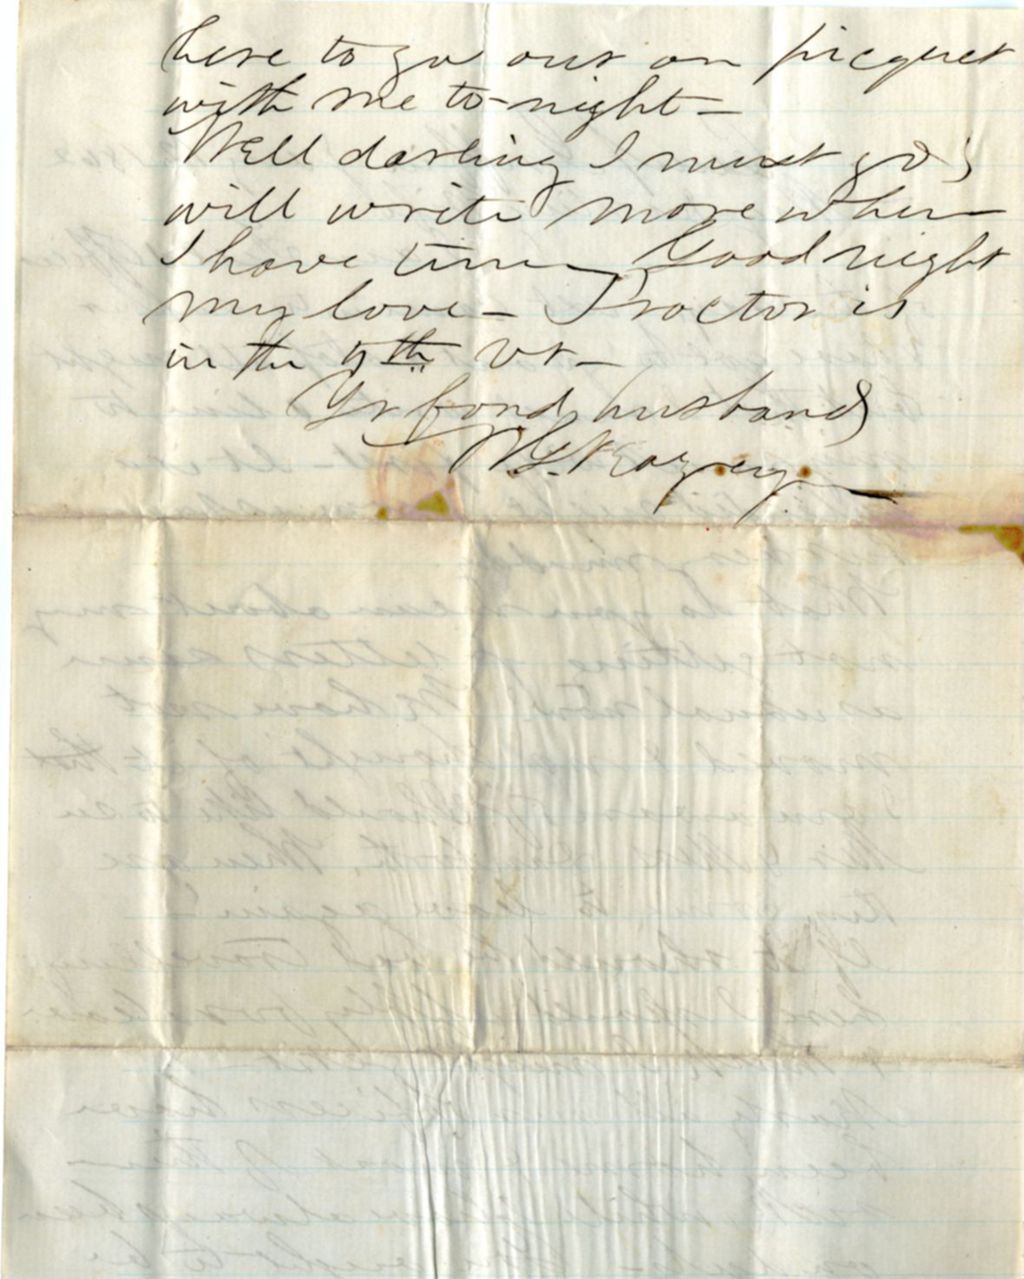 here to go out on picquet
with me to-night—
Well darling I must go;
will write more when
I have time, Good night
my love— Proctor is
in the 5th Vt—
Yr fond husband
W.G. Veazey.